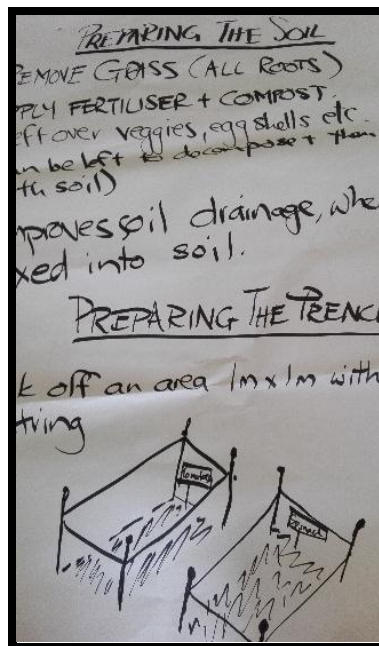 PREPARING THE SOIL
REMOVE GRASS (ALL ROOTS)
PPLY FERTILISER + COMPOST.
eft over veggies, egg shells etc.
n be left to decompose + then
th soil)
mproves soil drainage, whe
xed into soil.
PREPARING THE TRENC
k off an area 1m x 1m with
tring
tomatoes
Spinach